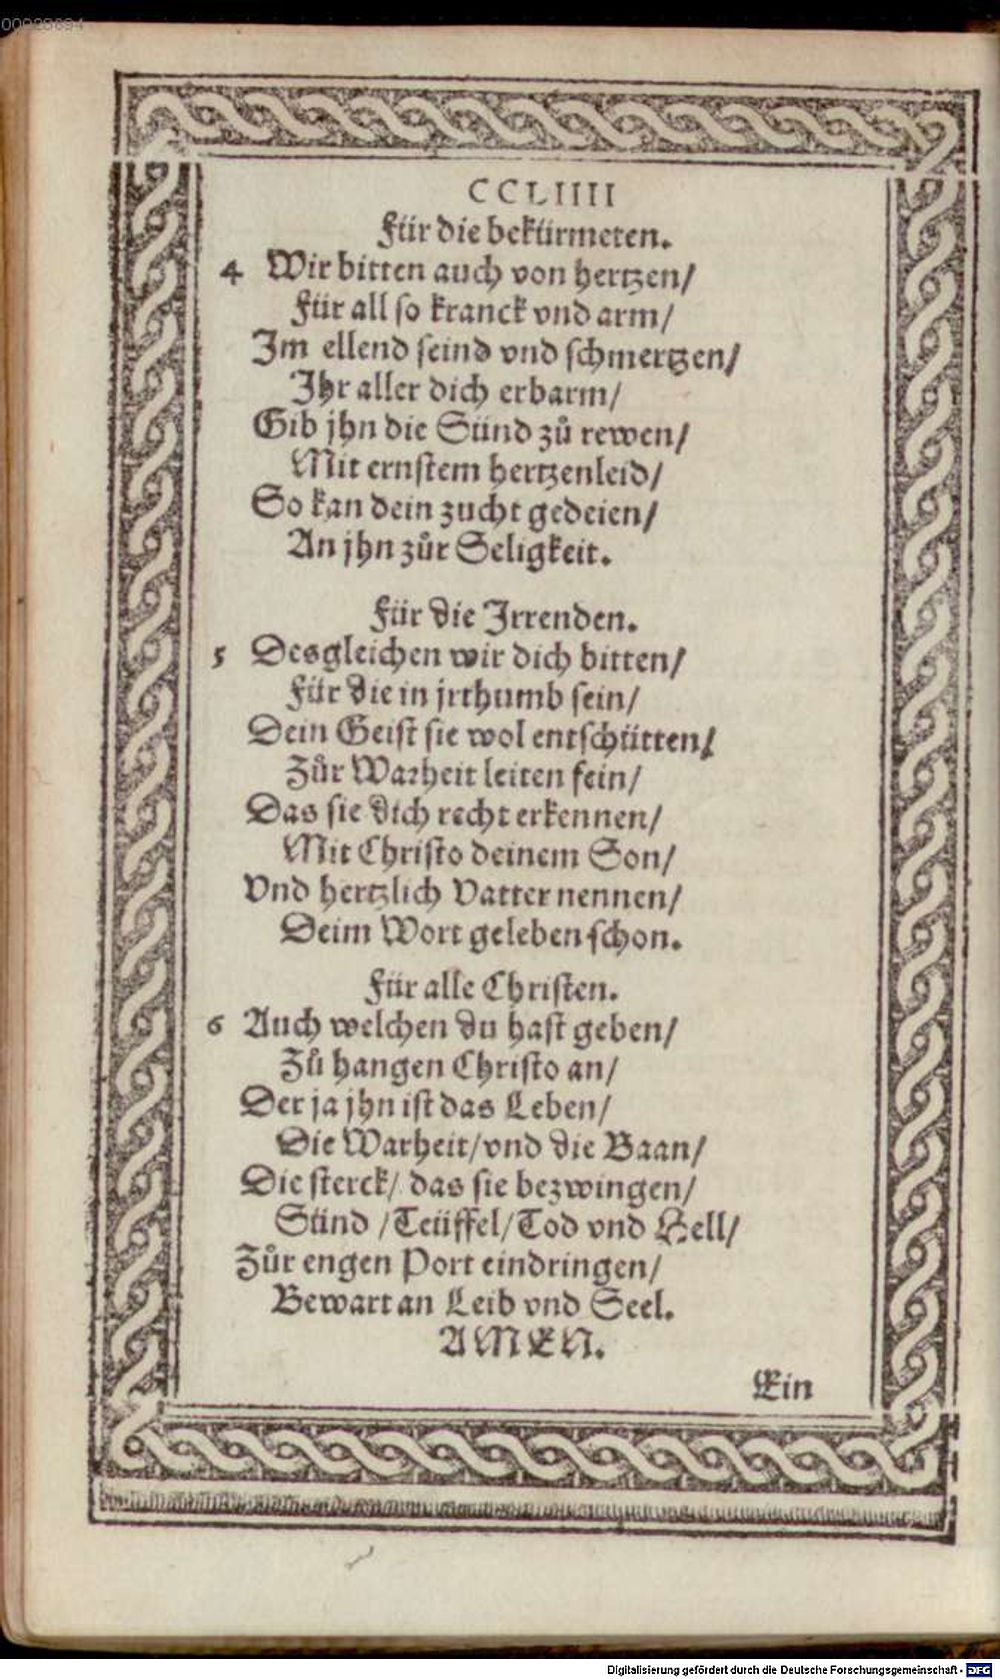 00028694
CCLIIII
Für die bekürmeten.
4 Wir bitten auch von hertzen/
Für all so kranck vnd arm/
Im ellend seind vnd schmertzen/
Ihr aller dich erbarm/
Gib jhn die Sünd zů rewen/
Mit ernstem hertzenleid/
So kan dein zucht gedeien/
An jhn zůr Seligkeit.
Für die Irrenden.
5 Desgleichen wir dich bitten/
Für die in jrthumb sein/
Dein Geist sie wol entschütten/
Zůr Warheit leiten fein/
Das sie dich recht erkennen/
Mit Christo deinem Son/
Vnd hertzlich Vatter nennen/
Deim Wort geleben schon.
Für alle Christen.
6 Auch welchen du hast geben/
Zů hangen Christo an/
Der ja jhn ist das Leben/
Die Warheit/vnd die Baan/
Die sterck/ das sie bezwingen/
Sünd /Teüffel/Tod vnd Hell/
Zůr engen Port eindringen/
Bewart an Leib vnd Seel.
AMEN.
Ein
Digitalisierung gefördert durch die Deutsche Forschungsgemeinschaft - DFG